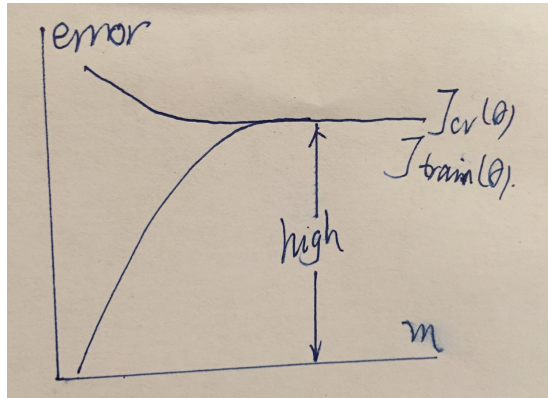 error
J_cv(θ)
J_train(θ).
high
m